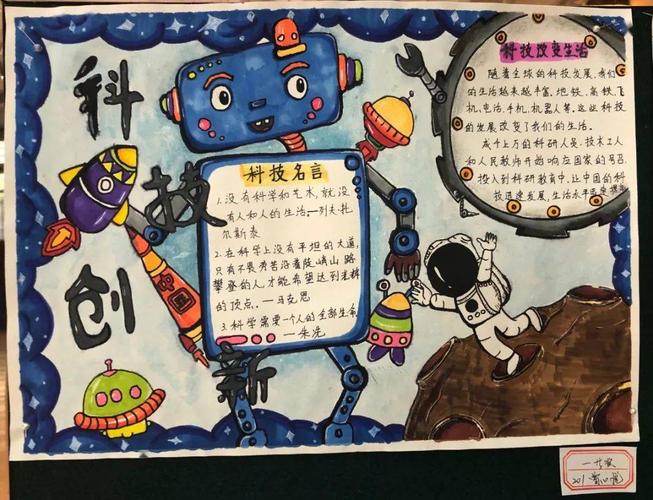 科技创新
科技名言
1.没有科学和艺术,就没
有人和人的生活—列夫·托
尔斯泰
2.在科学上没有平坦的大道,
只有不畏劳苦沿着陡峭山路
攀登的人才能希望达到光辉
的顶点。—马克思
3.科学需要一个人的全部生命
—朱冼
科技改变生活
随着全球的科技发展,我们
的生活越来越丰富,地铁、高铁、飞
机、电话、手机、机器人等,这些科技
的发展改变了我们的生活。
成千上万的科研人员、技术工人
和人民教师开始响应国家的号召,
投入到科研教育中,让中国的科
技迅速发展,生活水平
中国
201